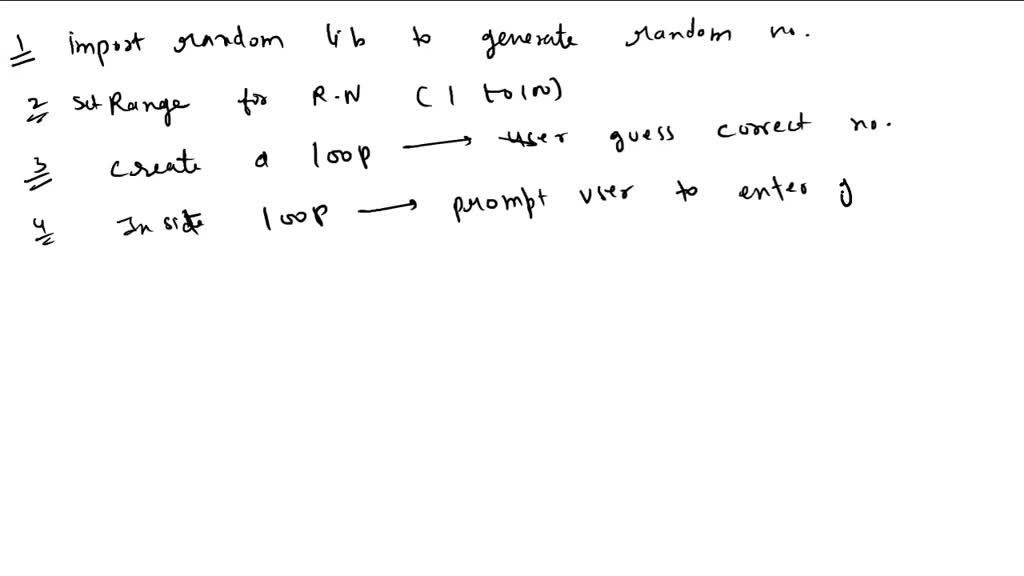 1 import random lib to generate random no.
2 Set Range for R.N (1 to 100)
3 create a loop → user guess correct no.
4 Inside loop → prompt user to enter g